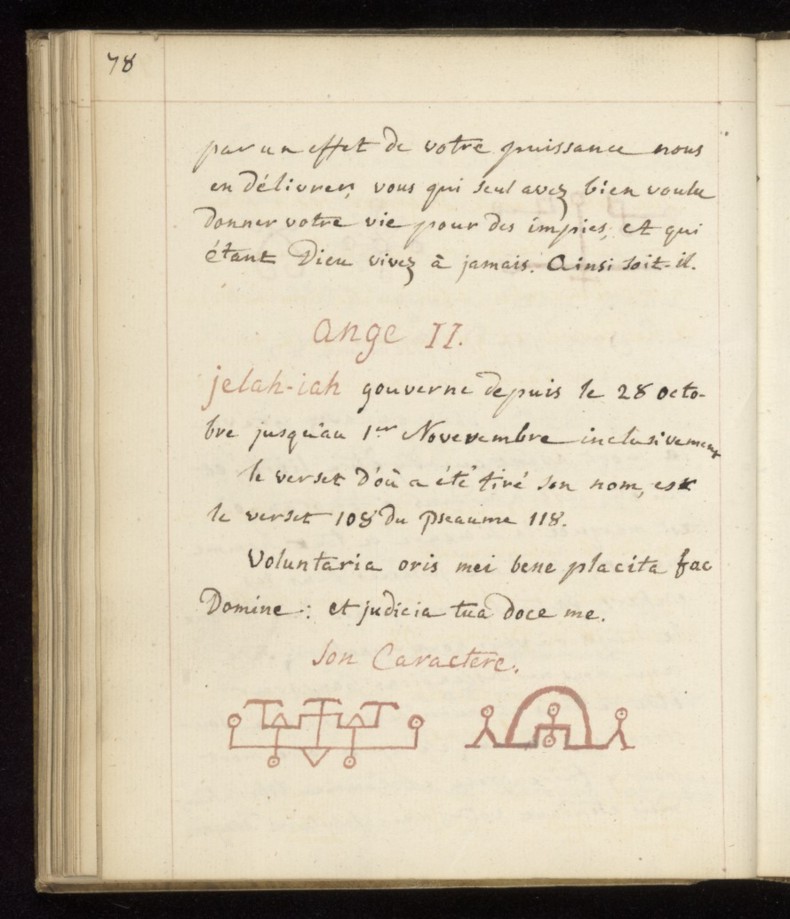 78
par un effet de votre puissance nous
en délivrer, vous qui seul avez bien voulu
donner votre vie pour des impies, et qui
étant Dieu vivez à jamais. Ainsi soit-il.
Ange II.
jelah-iah gouverne depuis le 28 octo-
bre jusqu'au 1er Novevembre inclusivement
le verset d'où a été tiré son nom, est
le verset 108 du pseaume 118.
Voluntaria oris mei bene placita fac
Domine : et judicia tua doce me.
Son Caractere.